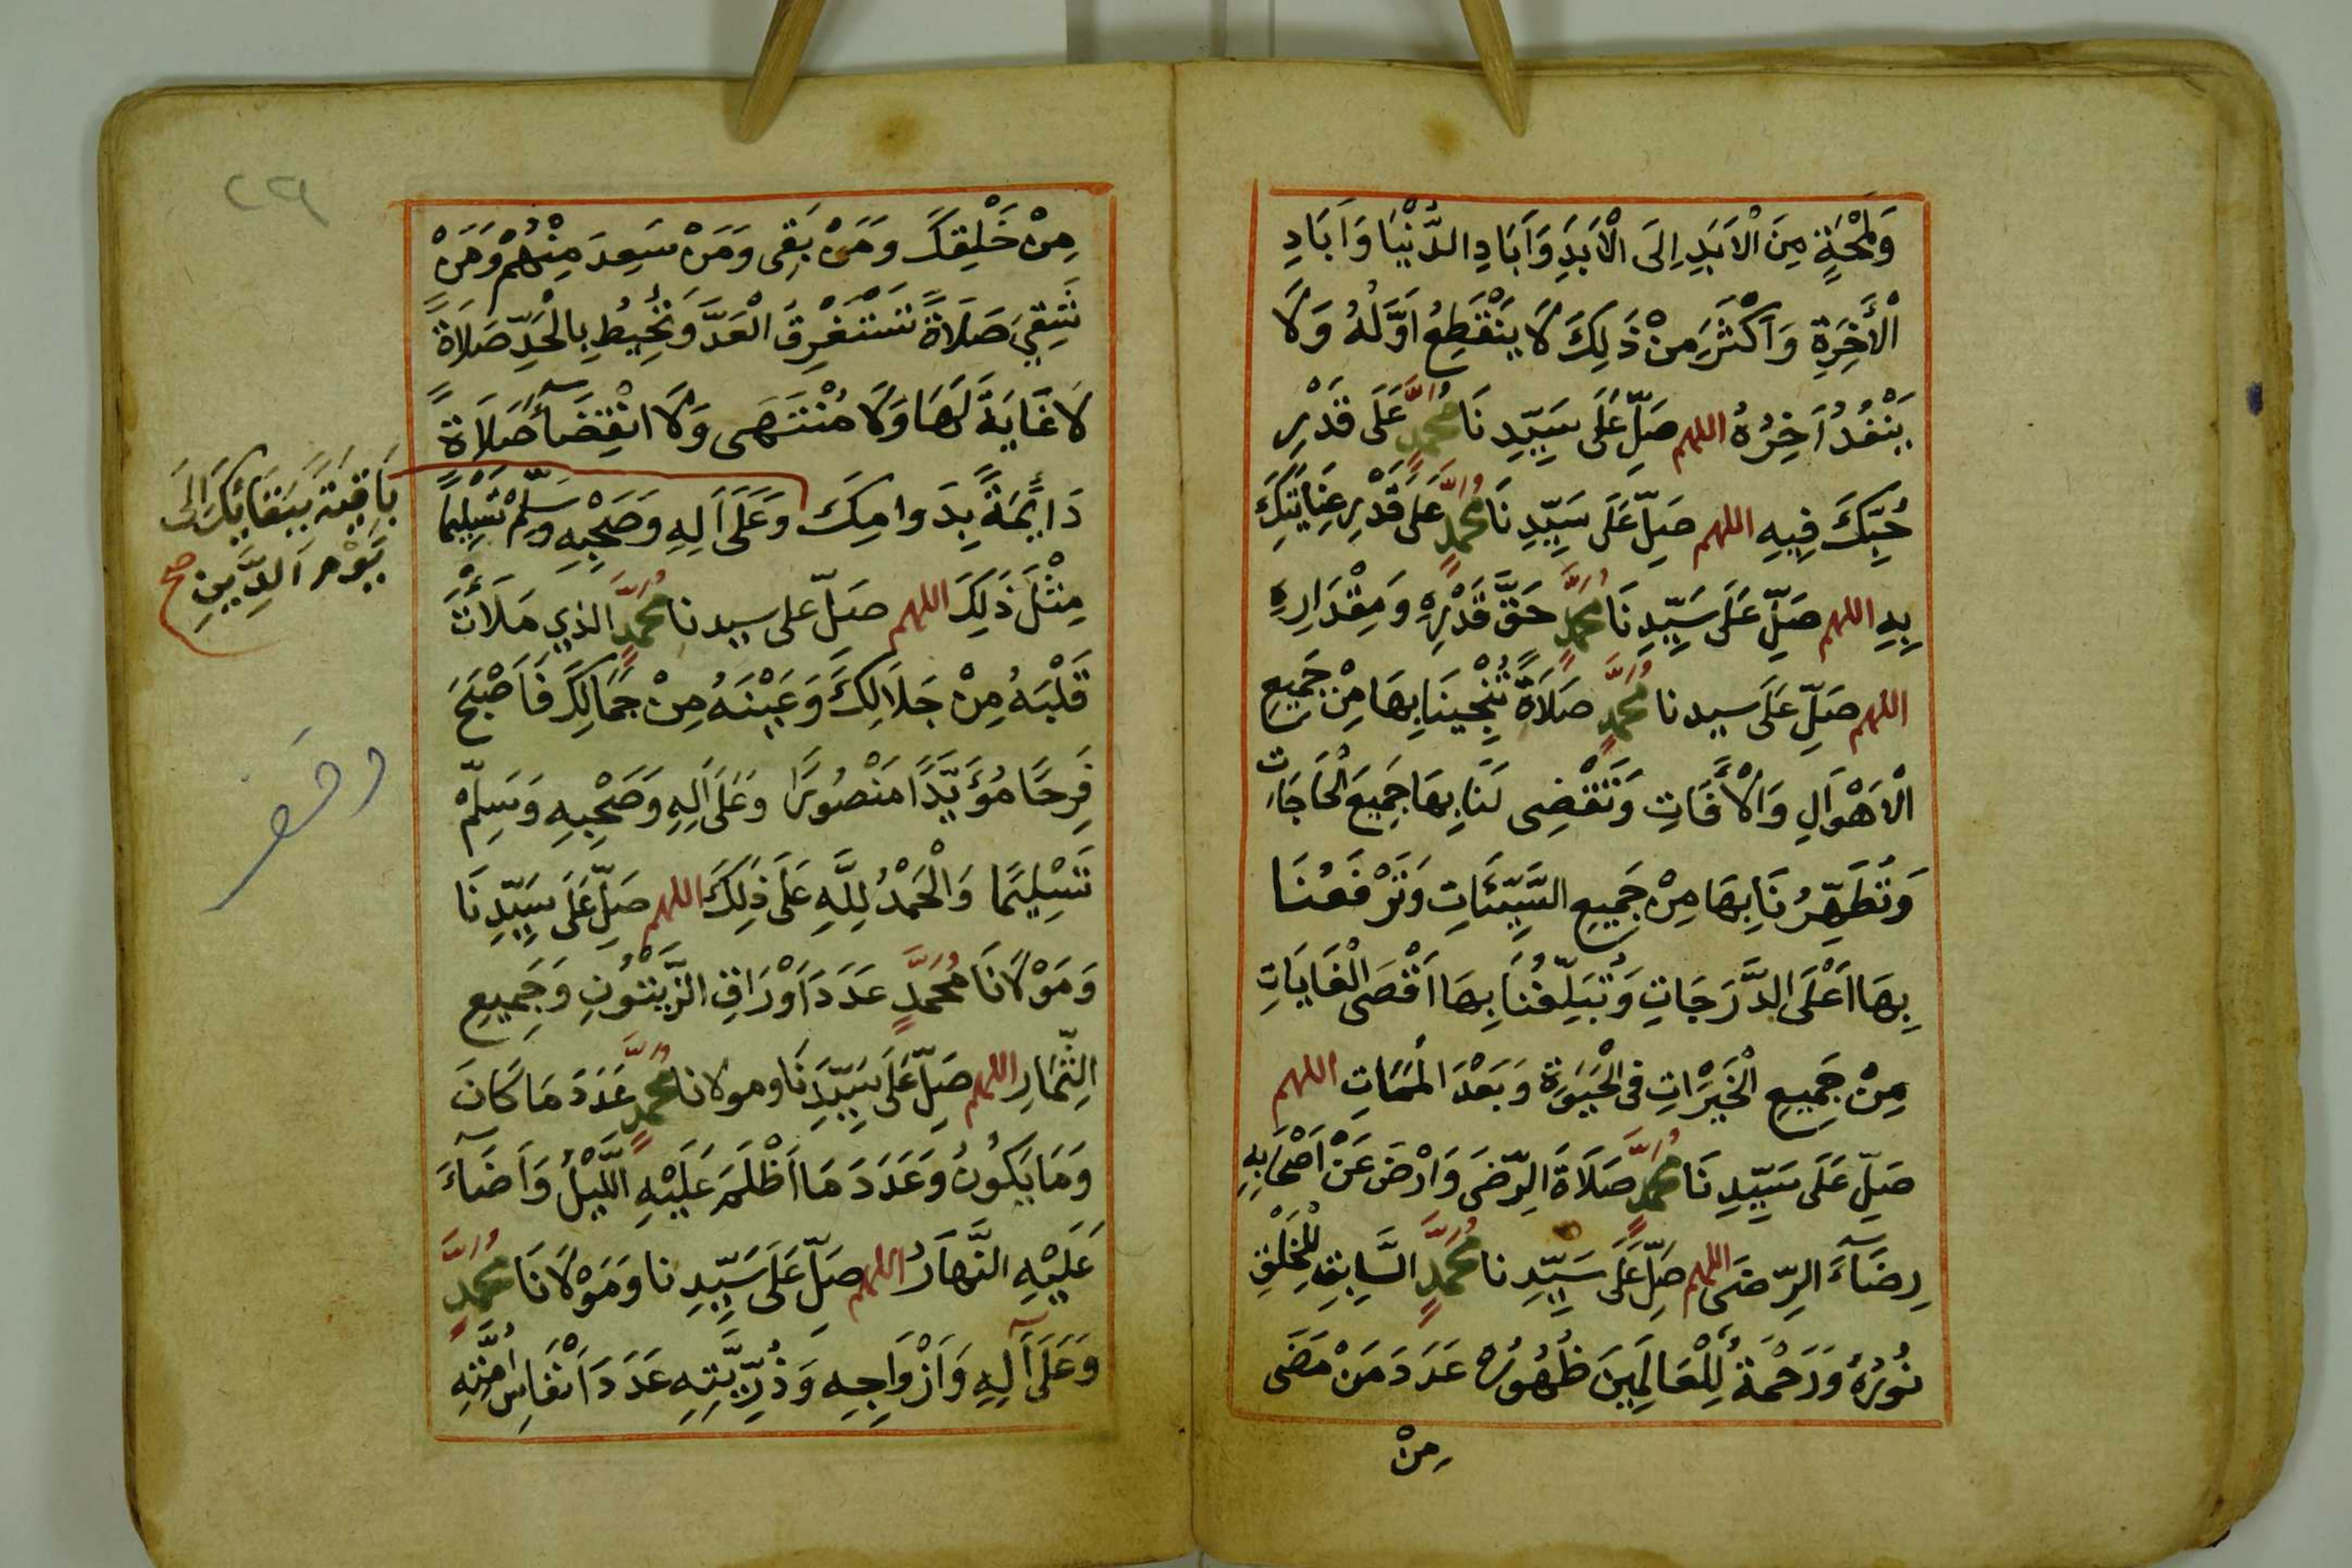 وَلَمْحَةٍ مِنَ الْاَبَدِ اِلَى الْاَبَدِ وَآبَادِ الدُّنْيَا وَآبَادِ
الْأٓخِرَةِ وَاَكْثَرَ مِنْ ذَلِكَ لَا يَنْقَطِعُ اَوَّلُهُ وَلَا
يَنْفُدُ آخِرُهُ اللهم صَلِّ عَلَى سَيِّدِنَا مُحَمَّدٍ عَلَى قَدْرِ
حُبِّكَ فِيهِ اللهم صَلِّ عَلَى سَيِّدِنَا مُحَمَّدٍ عَلَى قَدْرِ عِنَايَتِكَ
بِهِ اللهم صَلِّ عَلَى سَيِّدِنَا مُحَمَّدٍ حَقَّ قَدْرِهِ وَمِقْدَارِهِ
اللهم صَلِّ عَلَى سيدنا مُحَمَّدٍ صَلَاةً تُنْجِينَا بِهَا مِنْ جَمِيعِ
الْاَهْوَالِ وَالْأٓفَاتِ وَتَقْضِى لَنَا بِهَا جَمِيعَ الْحَاجَاتِ
وَتُطَهِّرُنَا بِهَا مِنْ جَمِيعِ السَّيِّئَاتِ وَتَرْفَعُنَا
بِهَا اَعْلَى الدَّرَجَاتِ وَتُبَلِّغُنَا بِهَا اَقْصَى الْغَايَاتِ
مِنْ جَمِيعِ الْخَيْرَاتِ فِى الْحَيَوةِ وَبَعْدَ الْمَمَاتِ اللهم
صَلِّ عَلَى سَيِّدِنَا مُحَمَّدٍ صَلَاةَ الرِّضَى وَارْضَ عَنْ اَصْحَابِهِ
رِضَآءَ الرِّضَى اللهم صَلِّ عَلَى سَيِّدِنا مُحَمَّدٍ السَّابِقِ لِلْخَلْقِ
نُورُهُ وَرَحْمَةٌ لِلْعَالَمِينَ ظُهُورُهُ عَدَدَ مَنْ مَضَى
مِنْ
٢٢٩
مِنْ خَلْقِكَ وَمَنْ بَقِى وَمَنْ سَعِدَ مِنْهُمْ وَمَنْ
شَقِيَ صَلَاةً تَسْتَغْرِقُ الْعَدَّ وَتُحِيطُ بِالْحَدِّ صَلَاةً
لَا غَايَةَ لَهَا وَلَا مُنْتَهَى وَلَا انْقِضَآءَ صَلَاةً
دَائِمَةً بِدَوامِكَ وَعَلَى آلِهِ وَصَحْبِهِ وَسَلِّمْ تَسْلِيمًا
بَاقِيَةً بِبَقَائِكَ اِلَى
يَوْمِ الدِّينِ صح
مِثْلَ ذَلِكَ اللهم صَلِّ على سيدنا مُحَمَّدٍ الذي مَلَأْتَ
قَلْبَهُ مِنْ جَلَالِكَ وَعَيْنَهُ مِنْ جَمَالِكَ فَاَصْبَحَ
فَرِحًا مُؤَيَّدًا مَنْصُورًا وَعَلَى آلِهِ وَصَحْبِهِ وَسَلِّمْ
تَسْلِيمًا وَالْحَمْدُ لِلَّهِ عَلَى ذَلِكَ اللهم صَلِّ عَلَى سَيِّدِنَا
وَمَوْلَانَا مُحَمَّدٍ عَدَدَ اَوْرَاقِ الزَّيْتُونِ وَجَمِيعِ
الثِّمَارِ اللهم صَلِّ عَلَى سَيِّدِنَا ومولانا مُحَمَّدٍ عَدَدَ مَا كَانَ
وَمَا يَكُونُ وَعَدَدَ مَا اَظْلَمَ عَلَيْهِ اللَّيْلُ وَاَضَآءَ
عَلَيْهِ النَّهَارُ اللهم صَلِّ عَلَى سَيِّدِنا وَمَوْلَانَا مُحَمَّدٍ
وَعَلَى آلِهِ وَاَزْوَاجِهِ وَذُرِّيَّتِهِ عَدَدَ اَنْفَاسِ اُمَّتِهِ